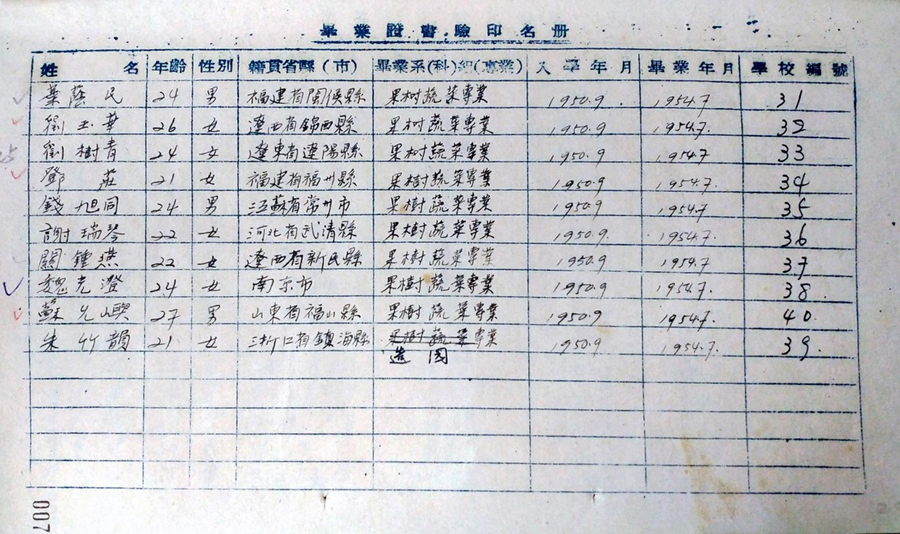 畢業證書驗印名册
姓名 年齡 性別 籍貫省縣(市) 畢業系(科)組(專業) 入學年月 畢業年月 學校編號
葉蔭民 24 男 福建省閩侯縣 果树蔬菜專業 1950.9 1954.7 31
劉玉華 26 女 遼西省錦西縣 果树蔬菜專業 1950.9 1954.7. 32
劉樹青 24 女 遼東省遼陽縣 果树蔬菜專業 1950.9 1954.7 33
鄧莊 21 女 福建省福州縣 果樹蔬菜專業 1950.9 1954.7. 34
錢旭同 24 男 江蘇省常州市 果樹蔬菜專業 1950.9 1954.7 35
謝瑞琴 22 女 河北省武清縣 果樹蔬菜專業 1950.9. 1954.7. 36
關鍾燕 22 女 遼西省新民縣 果樹蔬菜專業 1950.9 1954.7. 37
魏克澄 24 女 南京市 果樹蔬菜專業 1950.9 1954.7. 38
蘇 27 男 山東省福山縣 果樹蔬菜專業 1950.9 1954.7. 40
朱竹韻 21 女 浙江省鎮海縣 果樹蔬菜專業 1950.9 1954.7. 39.
造園
007